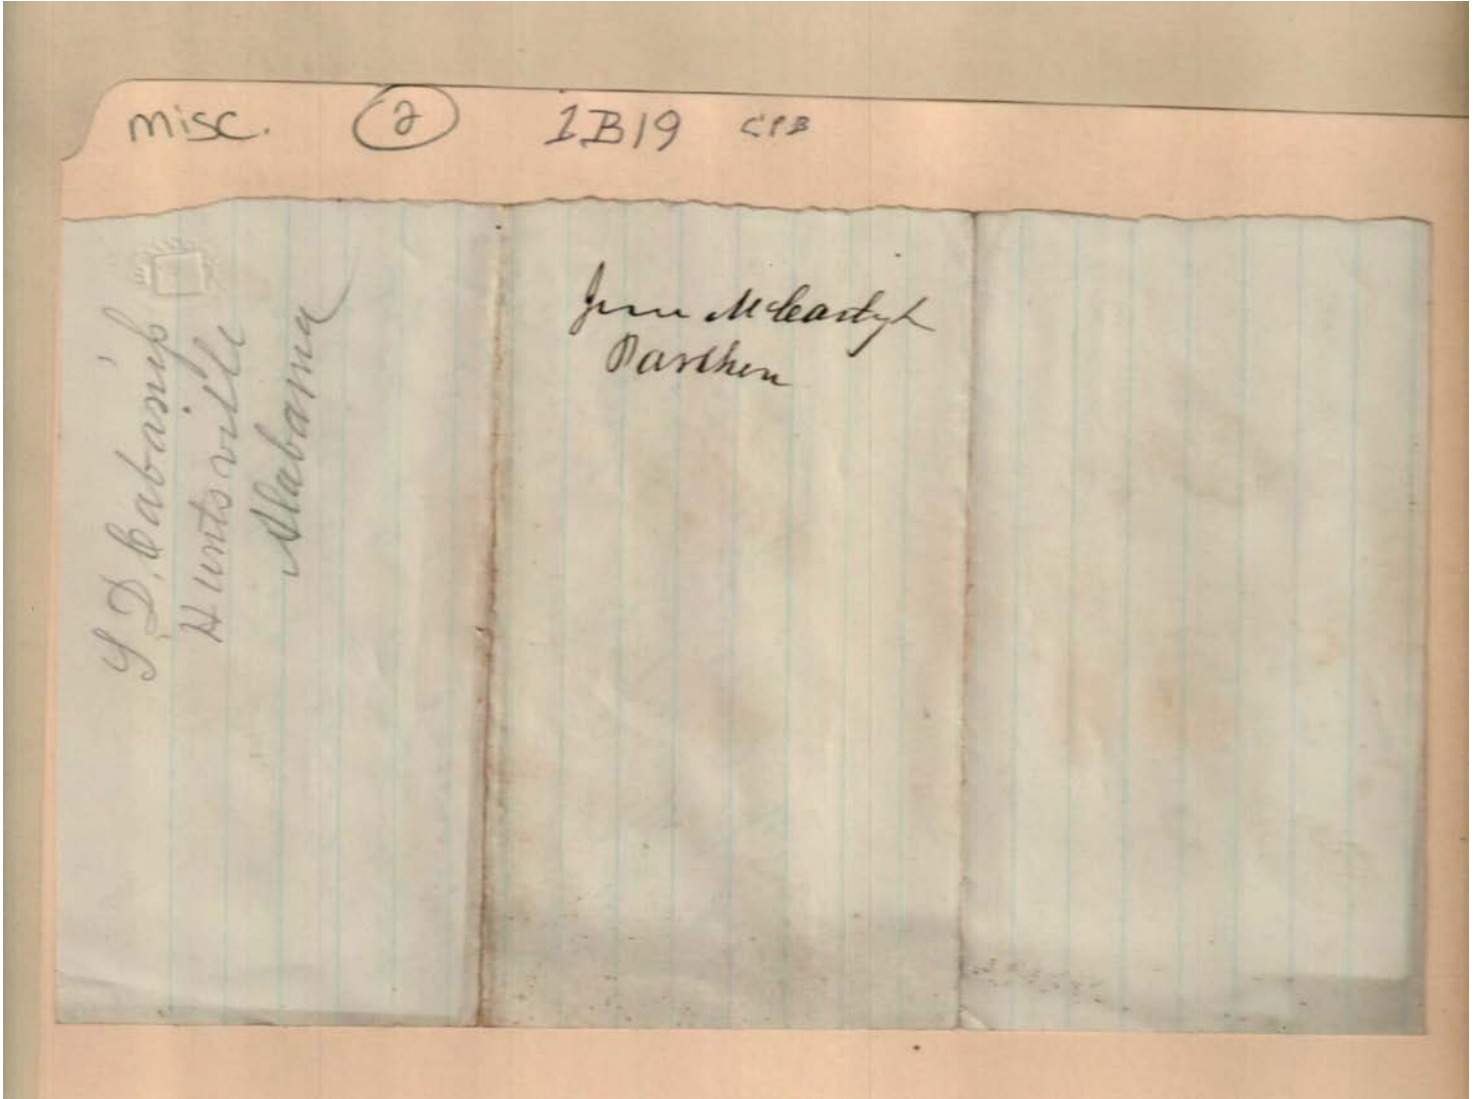 misc. 2 1B19 CPB
S D. Cabaniss
Huntsville
Alabama
Jesse McCartyh